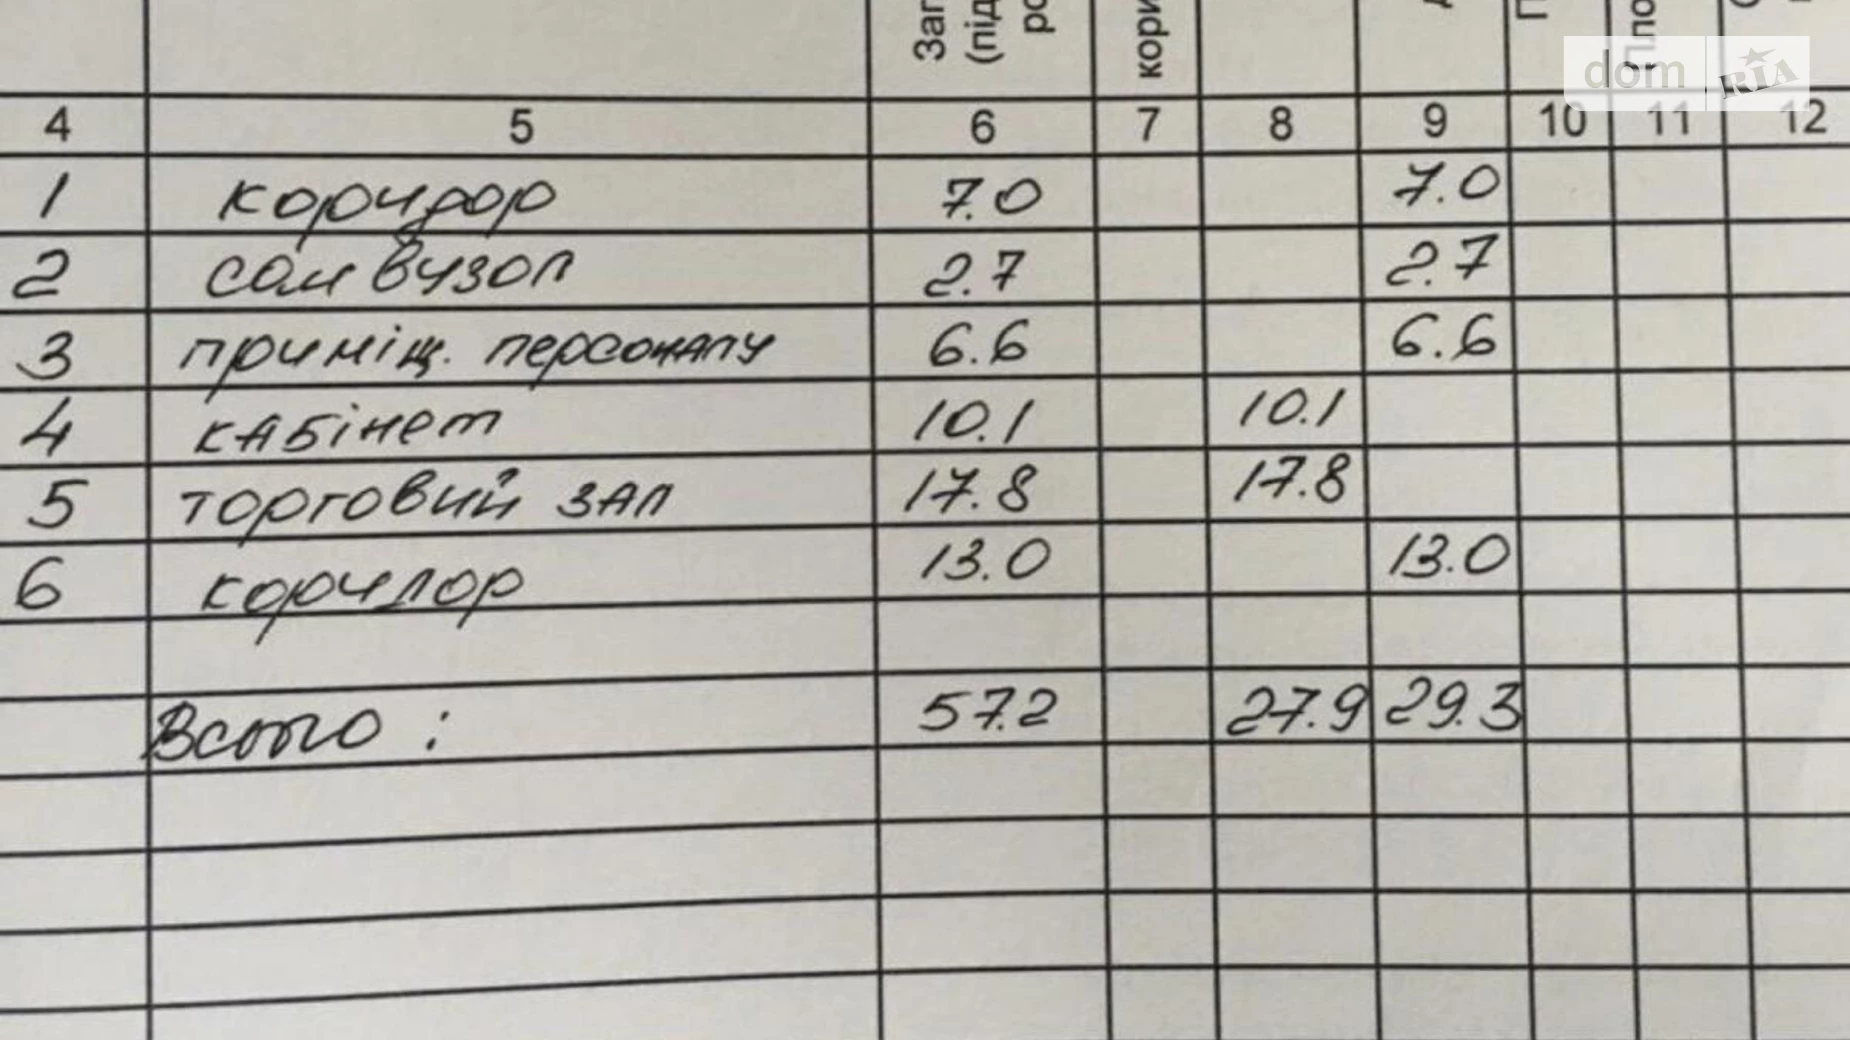 Заг
(під
ро
кори
dom RIA
4 5 6 7 8 9 10 11 12
1 коридор 7.0 7.0
2 сан вузол 2.7 2.7
3 приміщ. персоналу 6.6 6.6
4 кабінет 10.1 10.1
5 торговий зал 17.8 17.8
6 коридор 13.0 13.0
Всього : 57.2 27.9 29.3